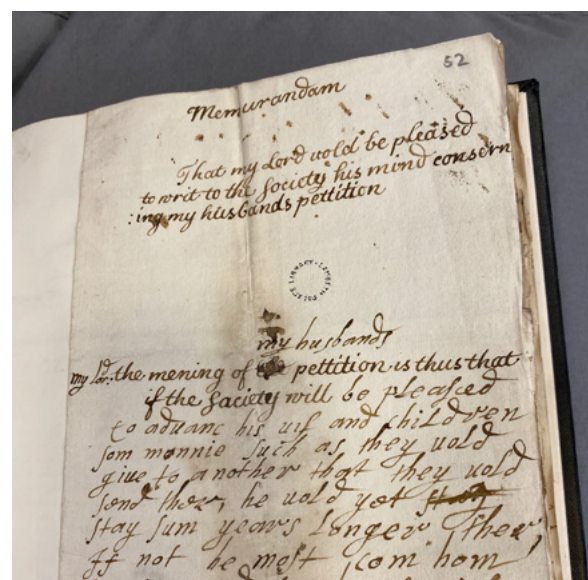 52
Memurandam
That my Lord vold be pleased
to writ to the Society his mind consern
:ing my husbands pettition
LAMBETH PALACE LIBRARY
my husbands
my Ld: the mening of the pettition is thus that
if the Society will be pleased
to aduanc his uif and children
som monnie such as they vold
giue to a nother that they vold
send ther, he vold yet stay
stay sum years Longer ther,
If not he most com hom